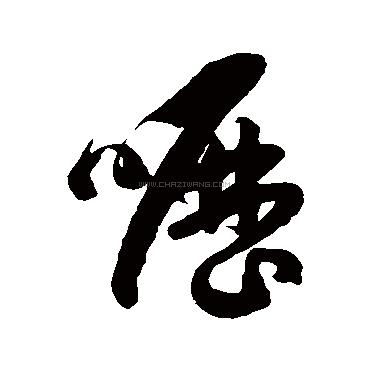 嚦
WWW.CHAZIWANG.COM